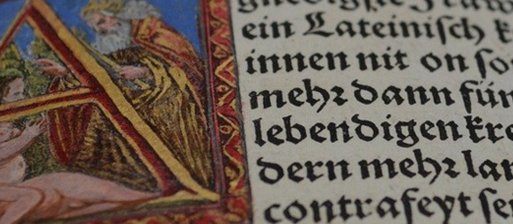 ein Lateinisch
innen nit on
mehꝛ dann fün
lebendigen kre
dern mehꝛ lan
contrafeyt se